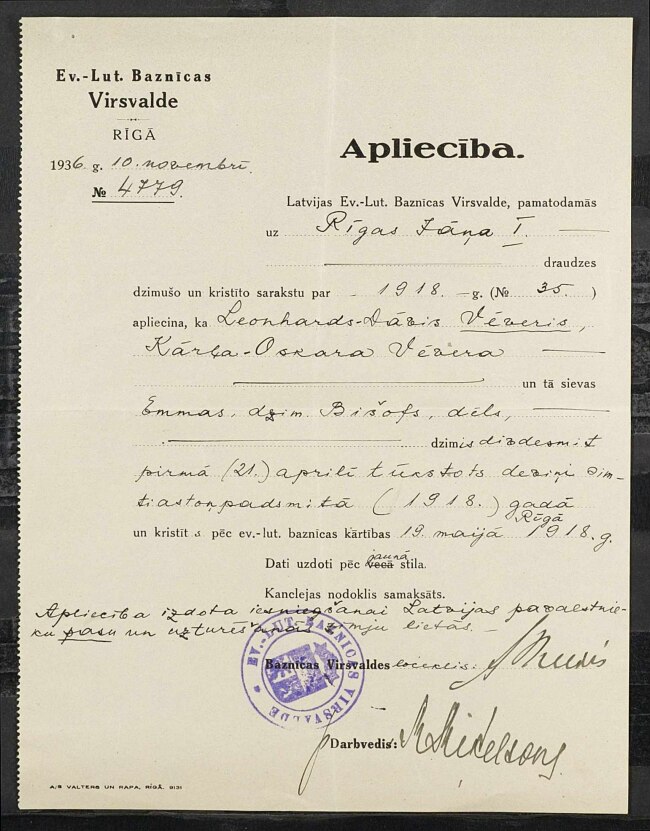 Ev.-Lut. Baznīcas
Virsvalde
RĪGĀ
1936. g. 10. novembrī.
№ 4779.
Apliecība.
Latvijas Ev.-Lut. Baznīcas Virsvalde, pamatodamās
uz Rīgas Jāņa I.
draudzes
dzimušo un kristīto sarakstu par 1918. g. (№ 35.)
apliecina, ka Leonhards-Dāvis Vēveris,
Kārļa-Oskara Vēvera
un tā sievas
Emmas, dzim. Bišofs, dēls,
dzimis divdesmit
pirmā (21.) aprilī tūkstots deviņi sim-
tiastoņpadsmitā (1918.) gadā
Rīgā
un kristīts pēc ev.-lut. baznīcas kārtības 19. maijā 1918. g.
Dati uzdoti pēc vecā jaunā stila.
Kanclejas nodoklis samaksāts.
Apliecība izdota iesniegšanai Latvijas pavalstnie-
ku pasu un uzturēšanās zīmju lietās.
Baznīcas Virsvaldes loceklis:
EV.-LUT. BAZNĪCAS VIRSVALDE
Darbvedis: Mikelsons
A/S VALTERS UN RAPA, RĪGĀ. 9131